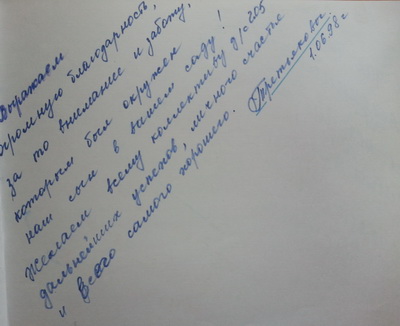 Выражаем
огромную благодарность,
за то внимание и заботу,
которым был окружен
наш сын в вашем саду!
Желаем всему коллективу д/с 205
дальнейших успехов, личного счастья
и всего самого хорошего.
Третьяковы.
1.06.98г